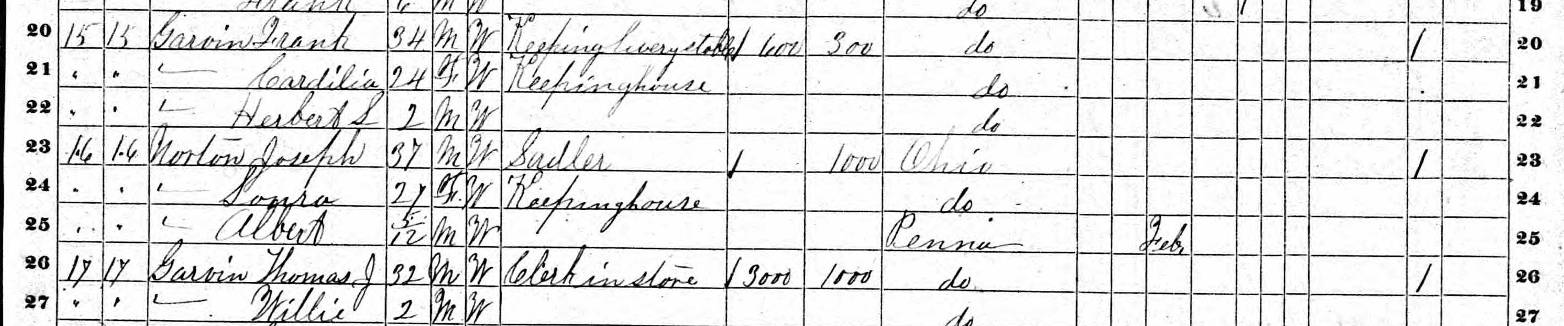 Frank 6 M W do 1 19
20 15 15 Garvin Frank 34 M W Keeping livery stable 1 600 300 do 1 20
21 " " — Cardilia 24 F W Keepinghouse do 21
22 " " — Herbert S 2 M W do 22
23 16 16 Norton Joseph 37 M W Sadler 1 1000 Ohio 1 23
24 " " — 27 F W Keepinghouse do 24
25 " " " Albert 5/12 M W Penna Feb 25
26 17 17 Garvin Thomas J 32 M W Clerk in store 1 3000 1000 do 1 26
27 " " — Willie 2 M W do 27